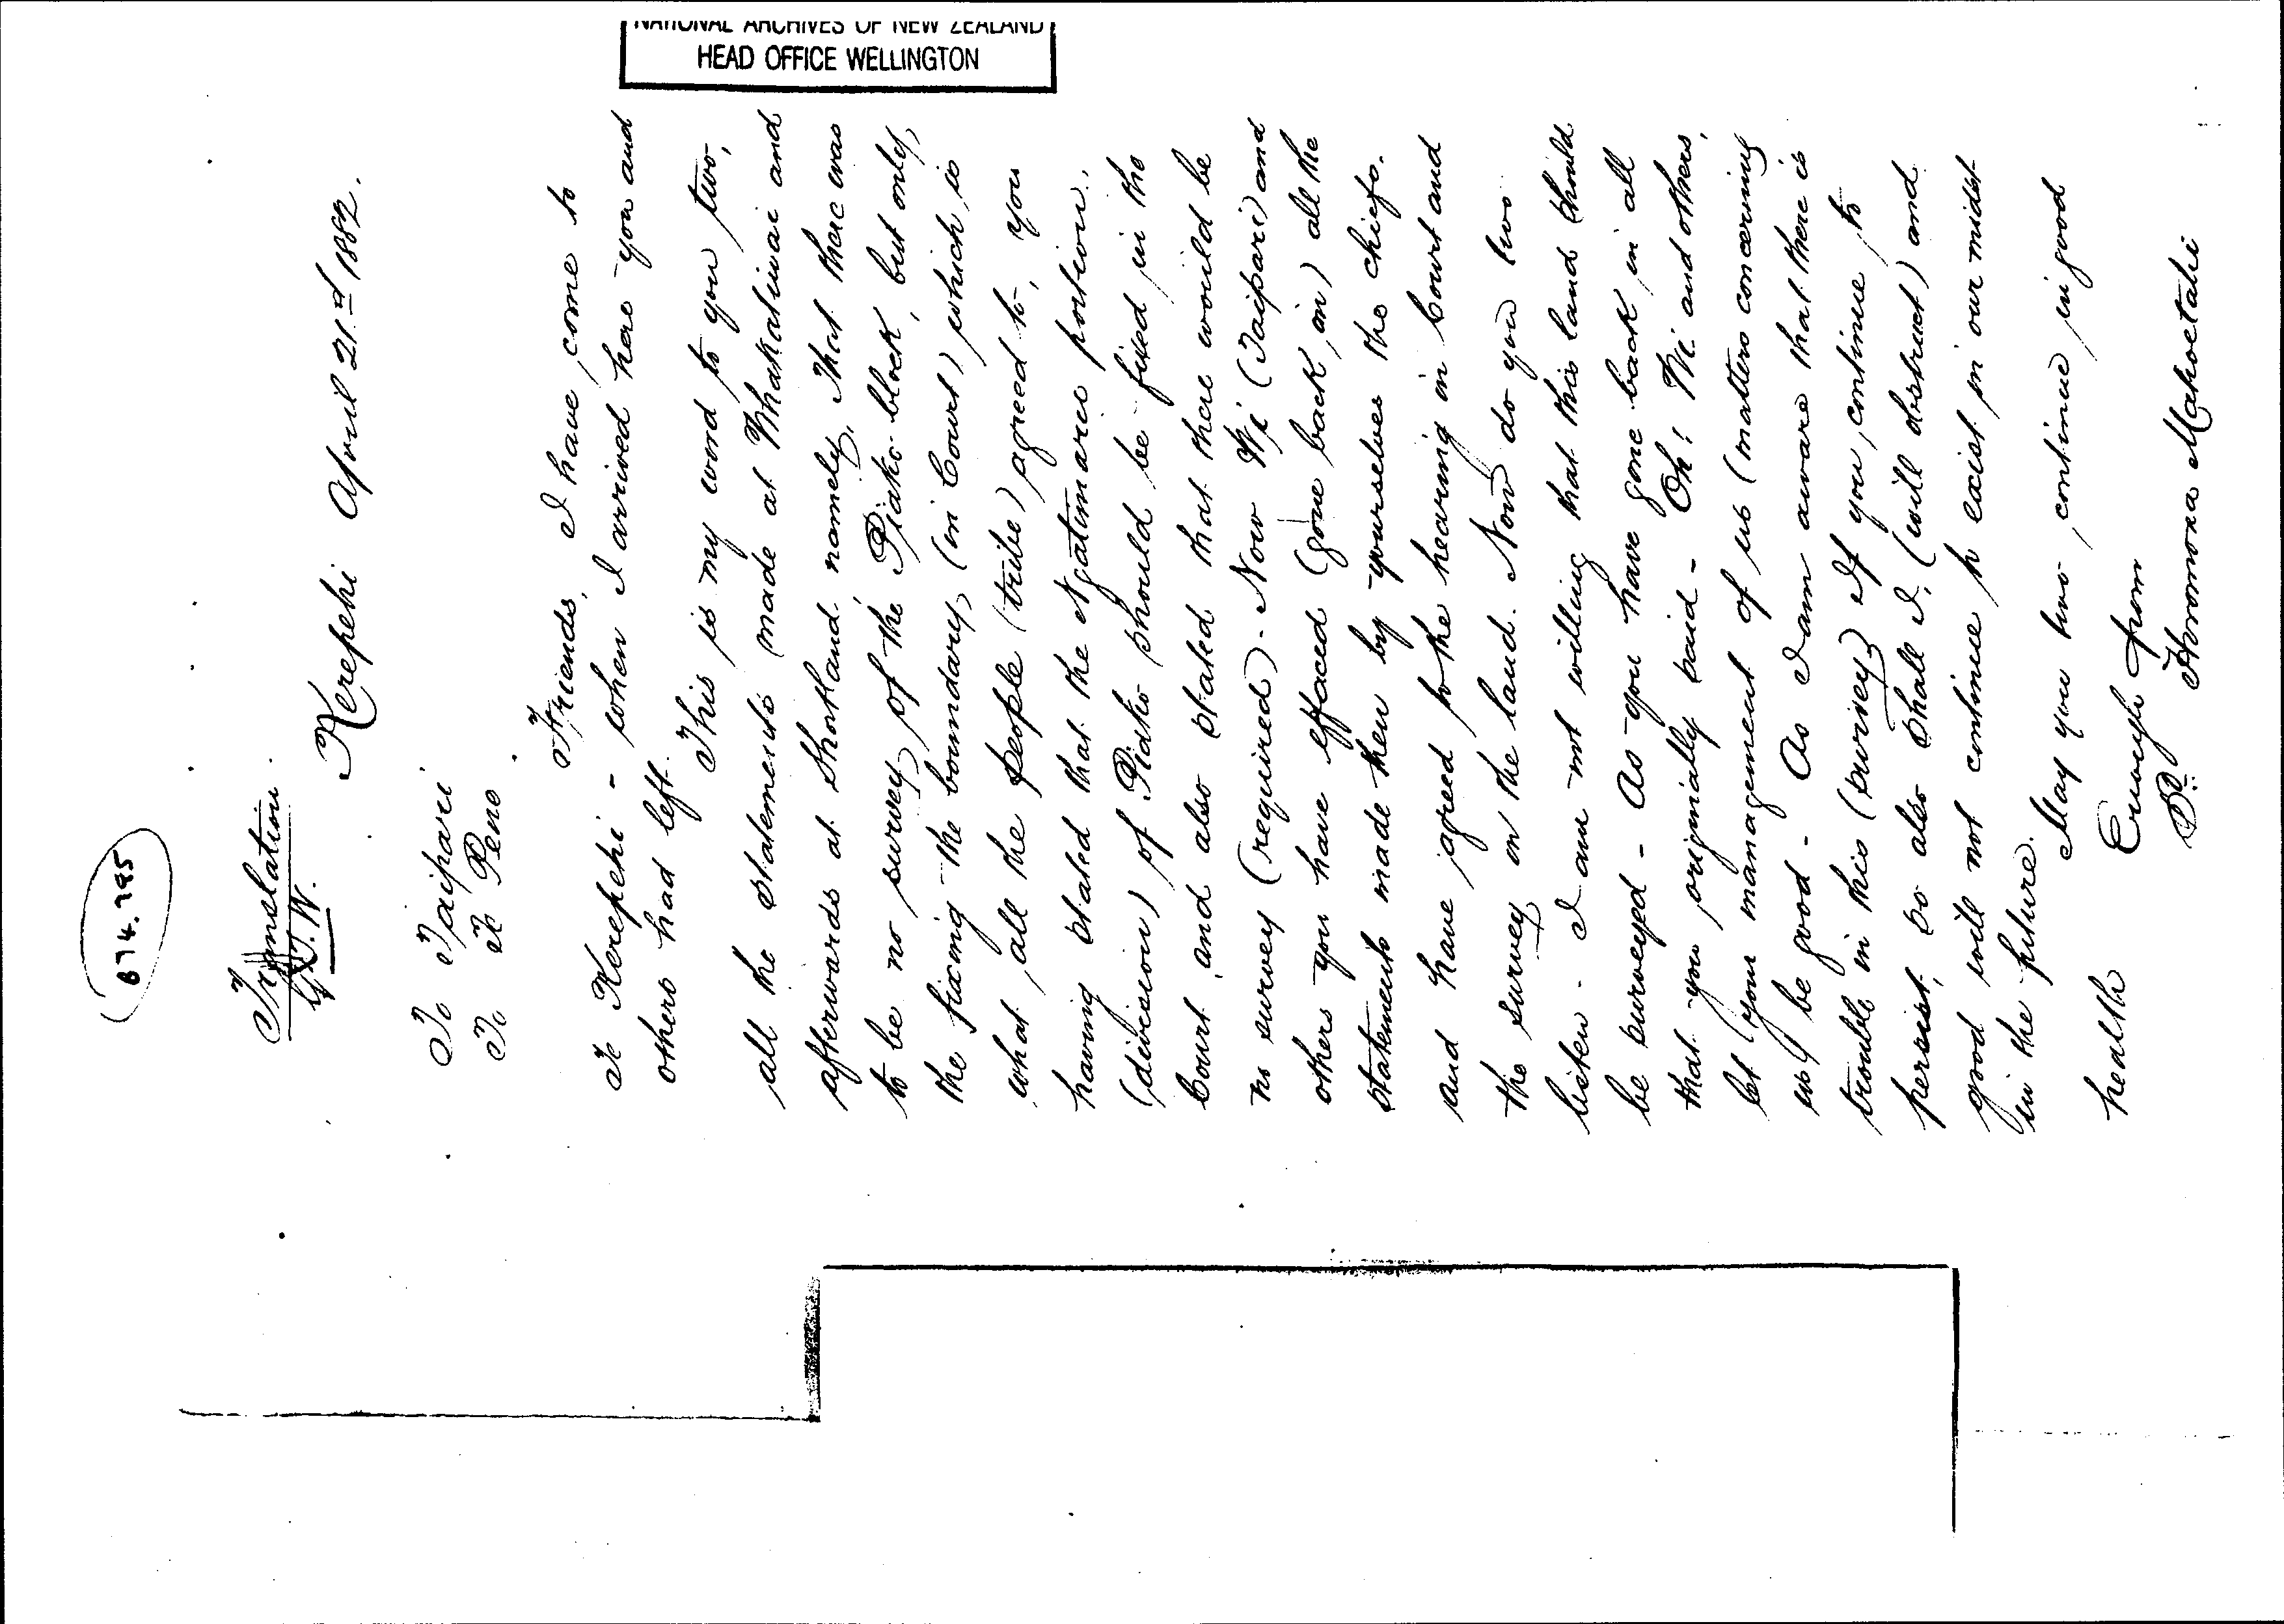 NATIONAL ARCHIVES OF NEW ZEALAND
HEAD OFFICE WELLINGTON
B74.795
Translation.
Kerepehi April 21st 1882.
To Taipari
To Te Peno
Friends, I have come to
Te Kerepehi - when I arrived here you and
others had left.
This is my word to you two,
all the statements made at Whakatiwai and
afterwards at Shortland namely, That there was
to be no survey of the Piako block, but only
the fixing the boundary (in Court) which is
what all the people (tribe) agreed to, you
having stated that the Ngatimaru portion,
(division) of Piako should be fixed in the
Court, and also stated that there would be
no survey (required). Now Wi (Taipari) and
others you have effaced (gone back on) all the
statements made then by yourselves the chiefs.
and have agreed to the hearing in Court and
the survey on the land. Now do you two
listen - I am not willing that this land should
be surveyed - As you have gone back in all
that you originally said - Oh! Wi and others,
let your management of us (matters concerning
us) be good - As I am aware that there is
trouble in this (survey) If you continue to
persist, so also shall I, (will obstruct) and
good will not continue to exist in our midst
in the future.
May you two continue in good
health
Enough from
Horomona Mahoetahi